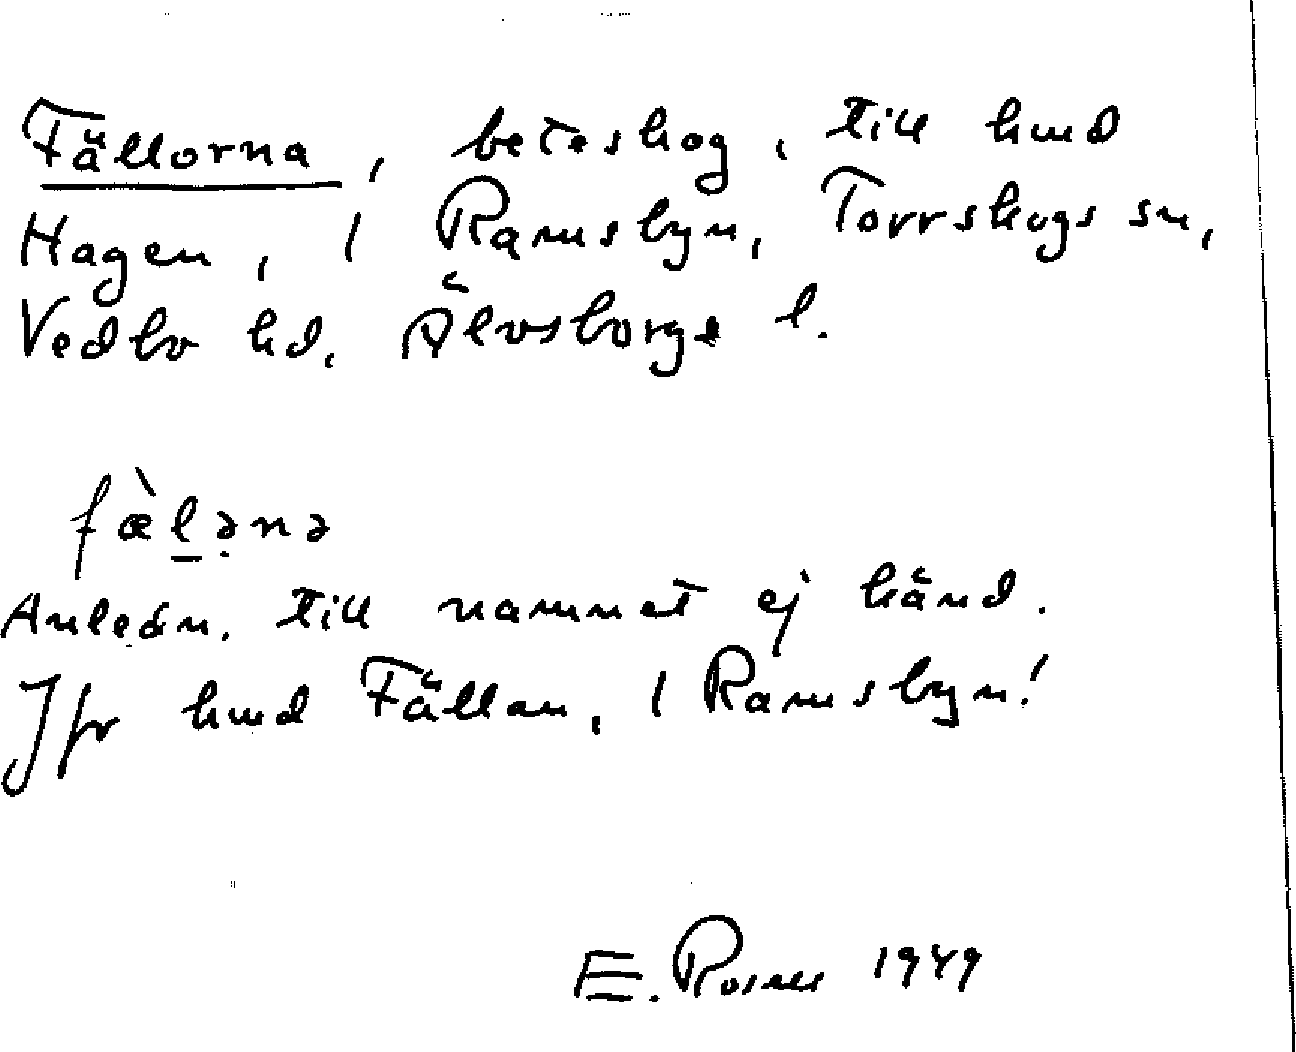 Fällorna, beteskog, till hmd
Hagen, 1 Ramsbyn, Torrskogs sn,
Vedbo hd, Älvsborgs l.
fæ̀l̠ə̣nə
Anledn. till namnet ej känd.
Jfr hmd Fällan, 1 Ramsbyn!
E. Rosms 1949